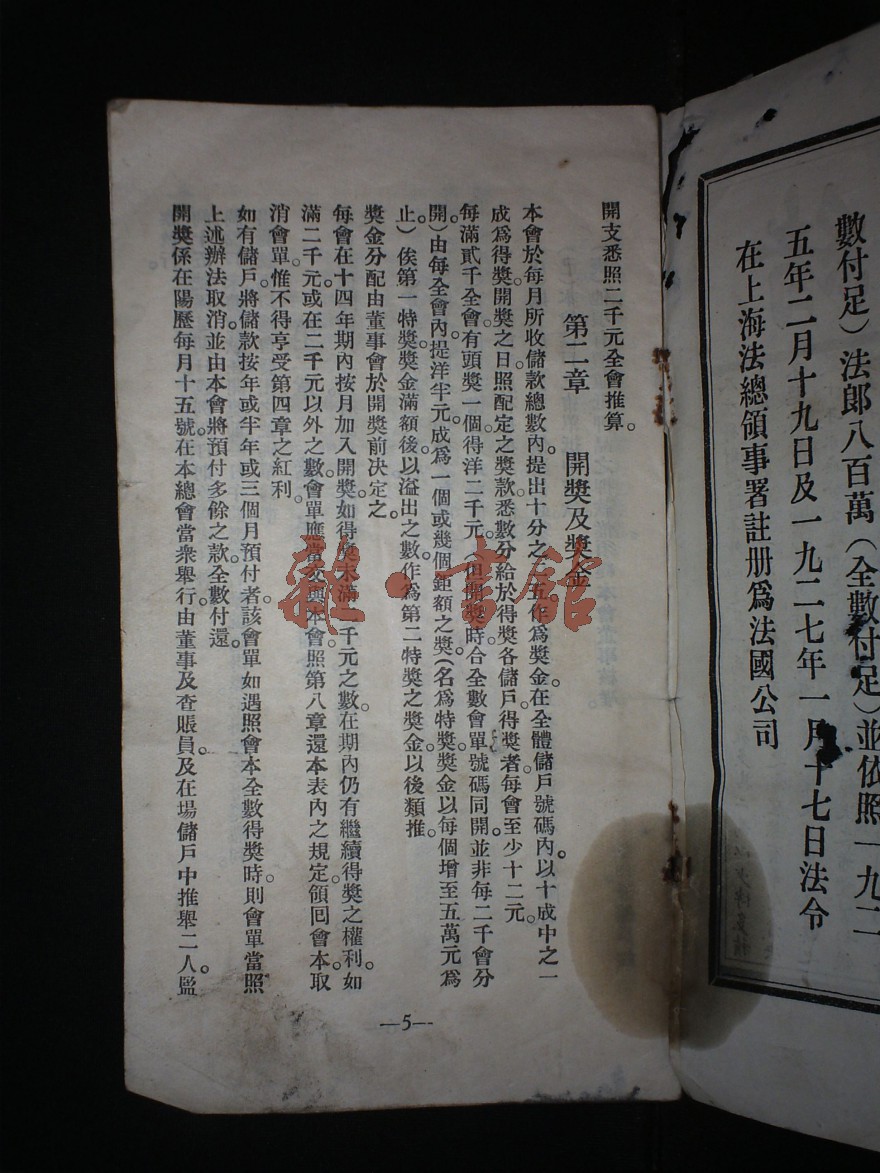 數付足）法郎八百萬（全數付足）並依照一九二
五年二月十九日及一九二七年一月十七日法令
在上海法總領事署註册爲法國公司
開支悉照二千元全會推算。
第二章　開獎及獎金
本會於每月所收儲款總數內。提出十分之二五作爲獎金。在全體儲戶號碼內。以十成中之一
成爲得獎。開獎之日照配定之獎款。悉數分給於得獎各儲戶。得獎者每會至少十二元。
每滿貳千全會。有頭獎一個。得洋二千元。（但開獎時。合全數會單號碼同開。並非每二千會分
開。）由每全會內。提洋半元。成爲一個或幾個鉅額之獎。（名爲特獎。獎金以每個增至五萬元爲
止。）俟第一特獎獎金滿額後。以溢出之數。作爲第二特獎之獎金。以後類推。
獎金分配由董事會於開獎前決定之。
每會在十四年期內。按月加入開獎。如得獎未滿二千元之數。在期內仍有繼續得獎之權利。如
滿二千元或在二千元以外之數。會單應當交與本會。照第八章還本表內之規定。領囘會本。取
消會單。惟不得享受第四章之紅利。
如有儲戶。將儲款按年或半年或三個月預付者。該會單如遇照會本全數得獎時。則會單當照
上述辦法取消。並由本會將預付多餘之款。全數付還。
開獎係在陽歷每月十五號。在本總會當衆舉行。由董事及查賬員。及在場儲戶中推舉二人。監
—5—
雜·書館